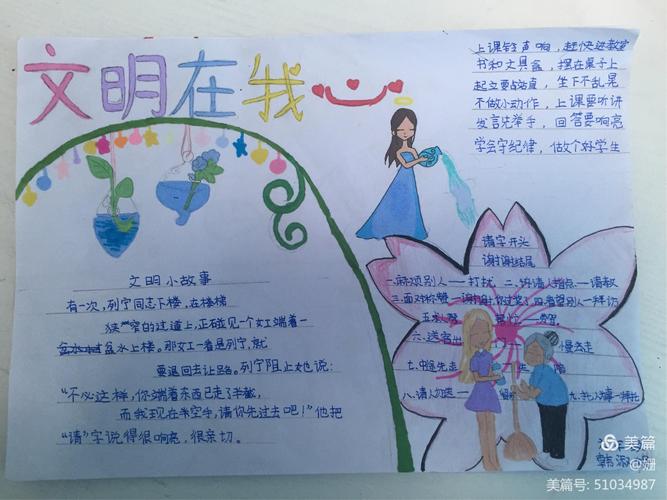 文明在我心
上课铃声响，赶快进教室
书和文具盒，摆在桌子上
起立要站直，坐下不乱晃
不做小动作，上课要听讲
发言先举手，回答要响亮
学会守纪律，做个好学生
文明小故事
有一次，列宁同志下楼，在楼梯
狭窄的过道上，正碰见一个女工端着一
盆水上楼。那女工一看是列宁，就
要退回去让路。列宁阻止她说：
“不必这样，你端着东西已走了半截，
而我现在空手，请你先过去吧！”他把
“请”字说得很响亮，很亲切。
请字开头
谢谢结尾
一.麻烦别人——打扰 二.请人指点——请教
三.面对称赞——谢谢，你过奖了 四.看望别人—拜访
六、送客出
慢走
七、中途先走
八、请人勿送——
九、托人办事—拜托
美篇
@姗
美篇号: 51034987